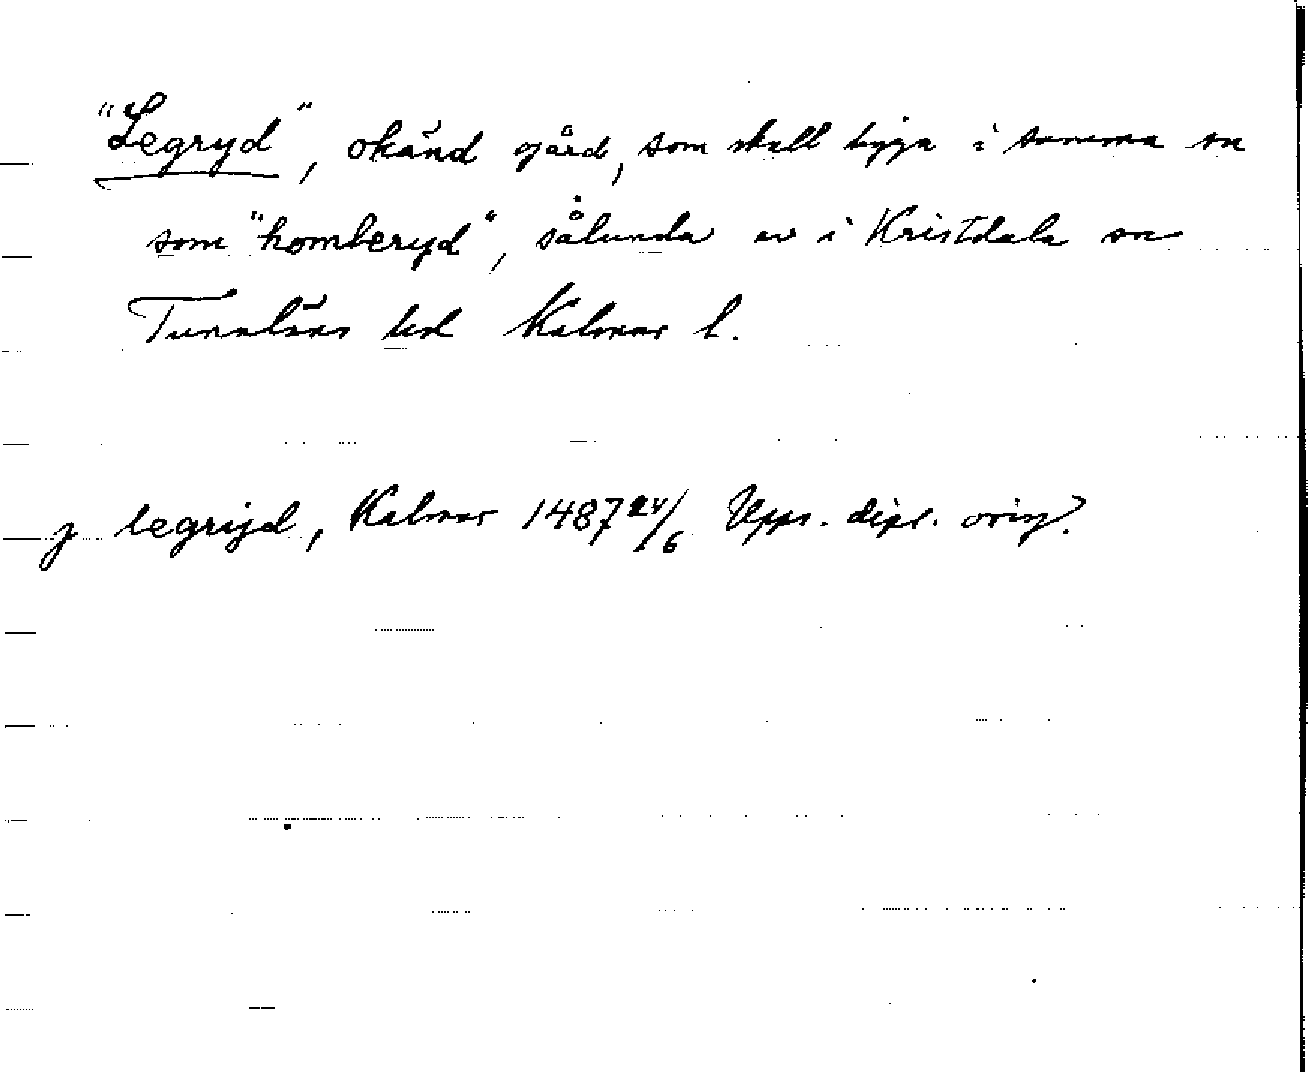 "Legryd", okänd gård, som skall ligga i samma sn
som "homberyd", sålunda ev i Kristdala sn
Tunaläns hd Kalmar l.
j legrijd, Kalmar 1487 24/6 Upps. dipl. orig.